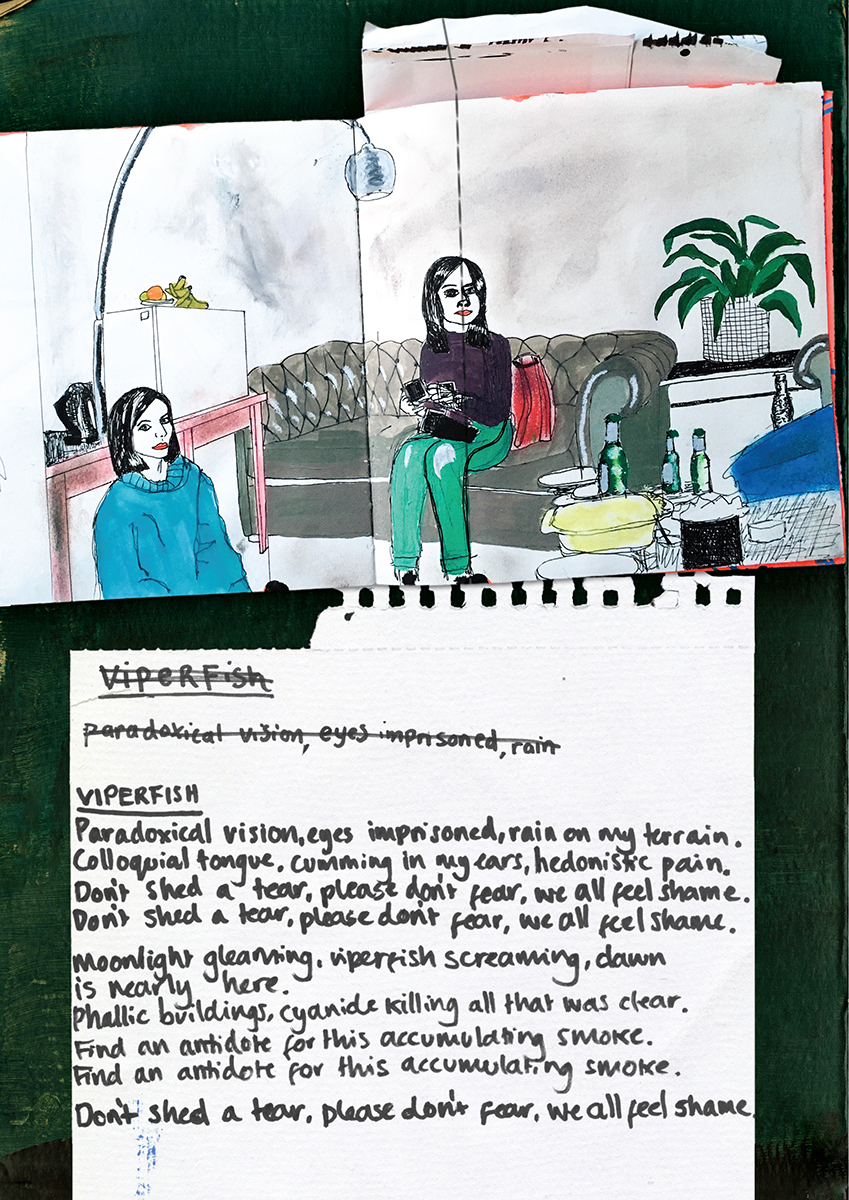 VIPERFISH
paradoxical vision, eyes imprisoned, rain
VIPERFISH
Paradoxical vision, eyes imprisoned, rain on my terrain.
Colloquial tongue, cumming in my ears, hedonistic pain.
Don't shed a tear, please don't fear, we all feel shame.
Don't shed a tear, please don't fear, we all feel shame.
Moonlight gleaming, viperfish screaming, dawn
is nearly here.
Phallic buildings, cyanide killing all that was clear.
Find an antidote for this accumulating smoke.
Find an antidote for this accumulating smoke.
Don't shed a tear, please don't fear, we all feel shame.